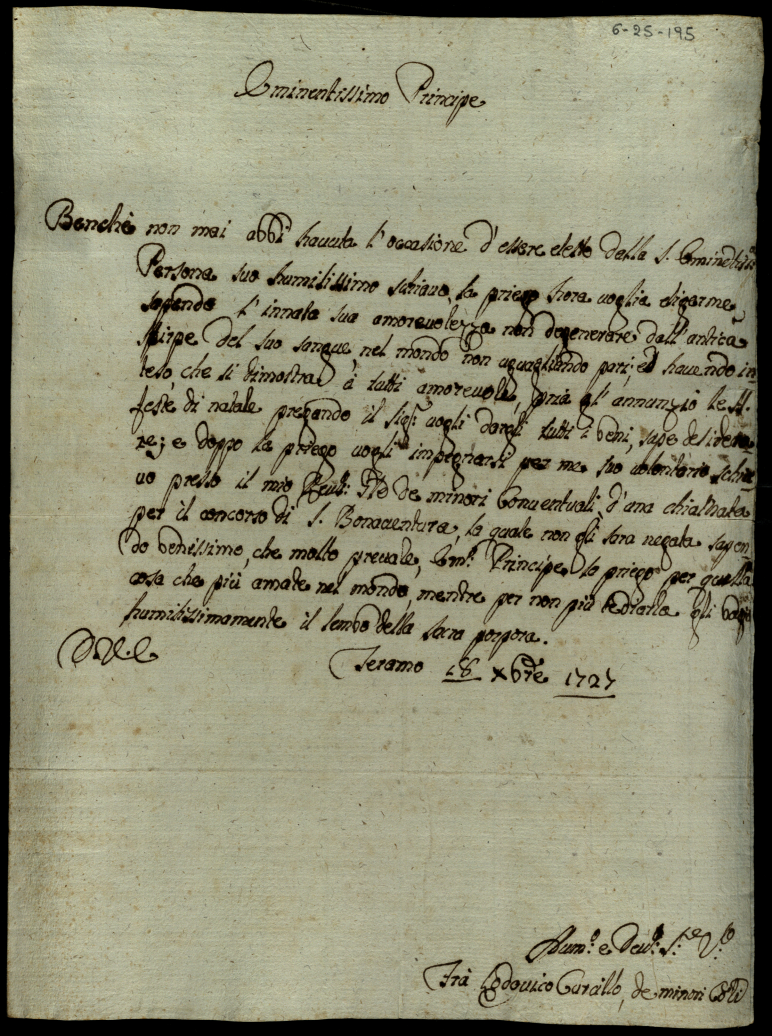 6-25-195
Eminentissimo Principe
Benchè non mai abbi hauuta l'occasione d'essere eletto dalla S. Eminentis.
Persona suo humilissimo schiauo, la priego hora uoglia eligerme,
sapendo l'innata sua amoreuolezza non degenerare dall'antica
stirpe del suo sangue, nel mondo non uguagliando pari; ed hauendo in-
teso, che si dimostra à tutti amoreuole, pria gl'annunzio le SS.
feste di natale pregando il Sig.r uogli dargli tutti i beni, sape desidera-
re; e doppo la priego uogli impegnarsi per me suo uolontario schia-
uo presso il mio Reu.mo P. de minori Conuentuali d'una chiamata
per il concorso di S. Bonauentura, la quale non gli sara negata sapen-
do benissimo, che molto preuale, Em.o Principe lo priego per quella
cosa che più amate nel mondo, mentre per non più tediarla gli bagio
humilissimamente il lembo della sacra porpora.
D.V.E.
Teramo 18 Xbre 1727
Hum.o e Deu.o S.re V.o
Frà Lodouico Curcillo, de minori